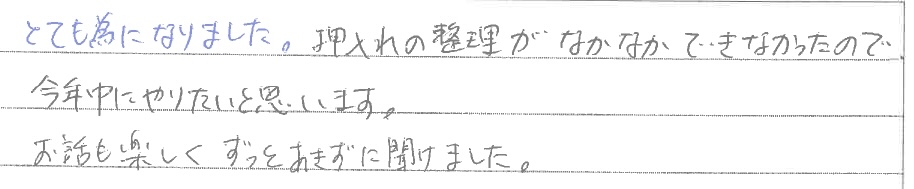 とても為になりました。押入れの整理がなかなかできなかったので
今年中にやりたいと思います。
お話も楽しくずっとあきずに聞けました。